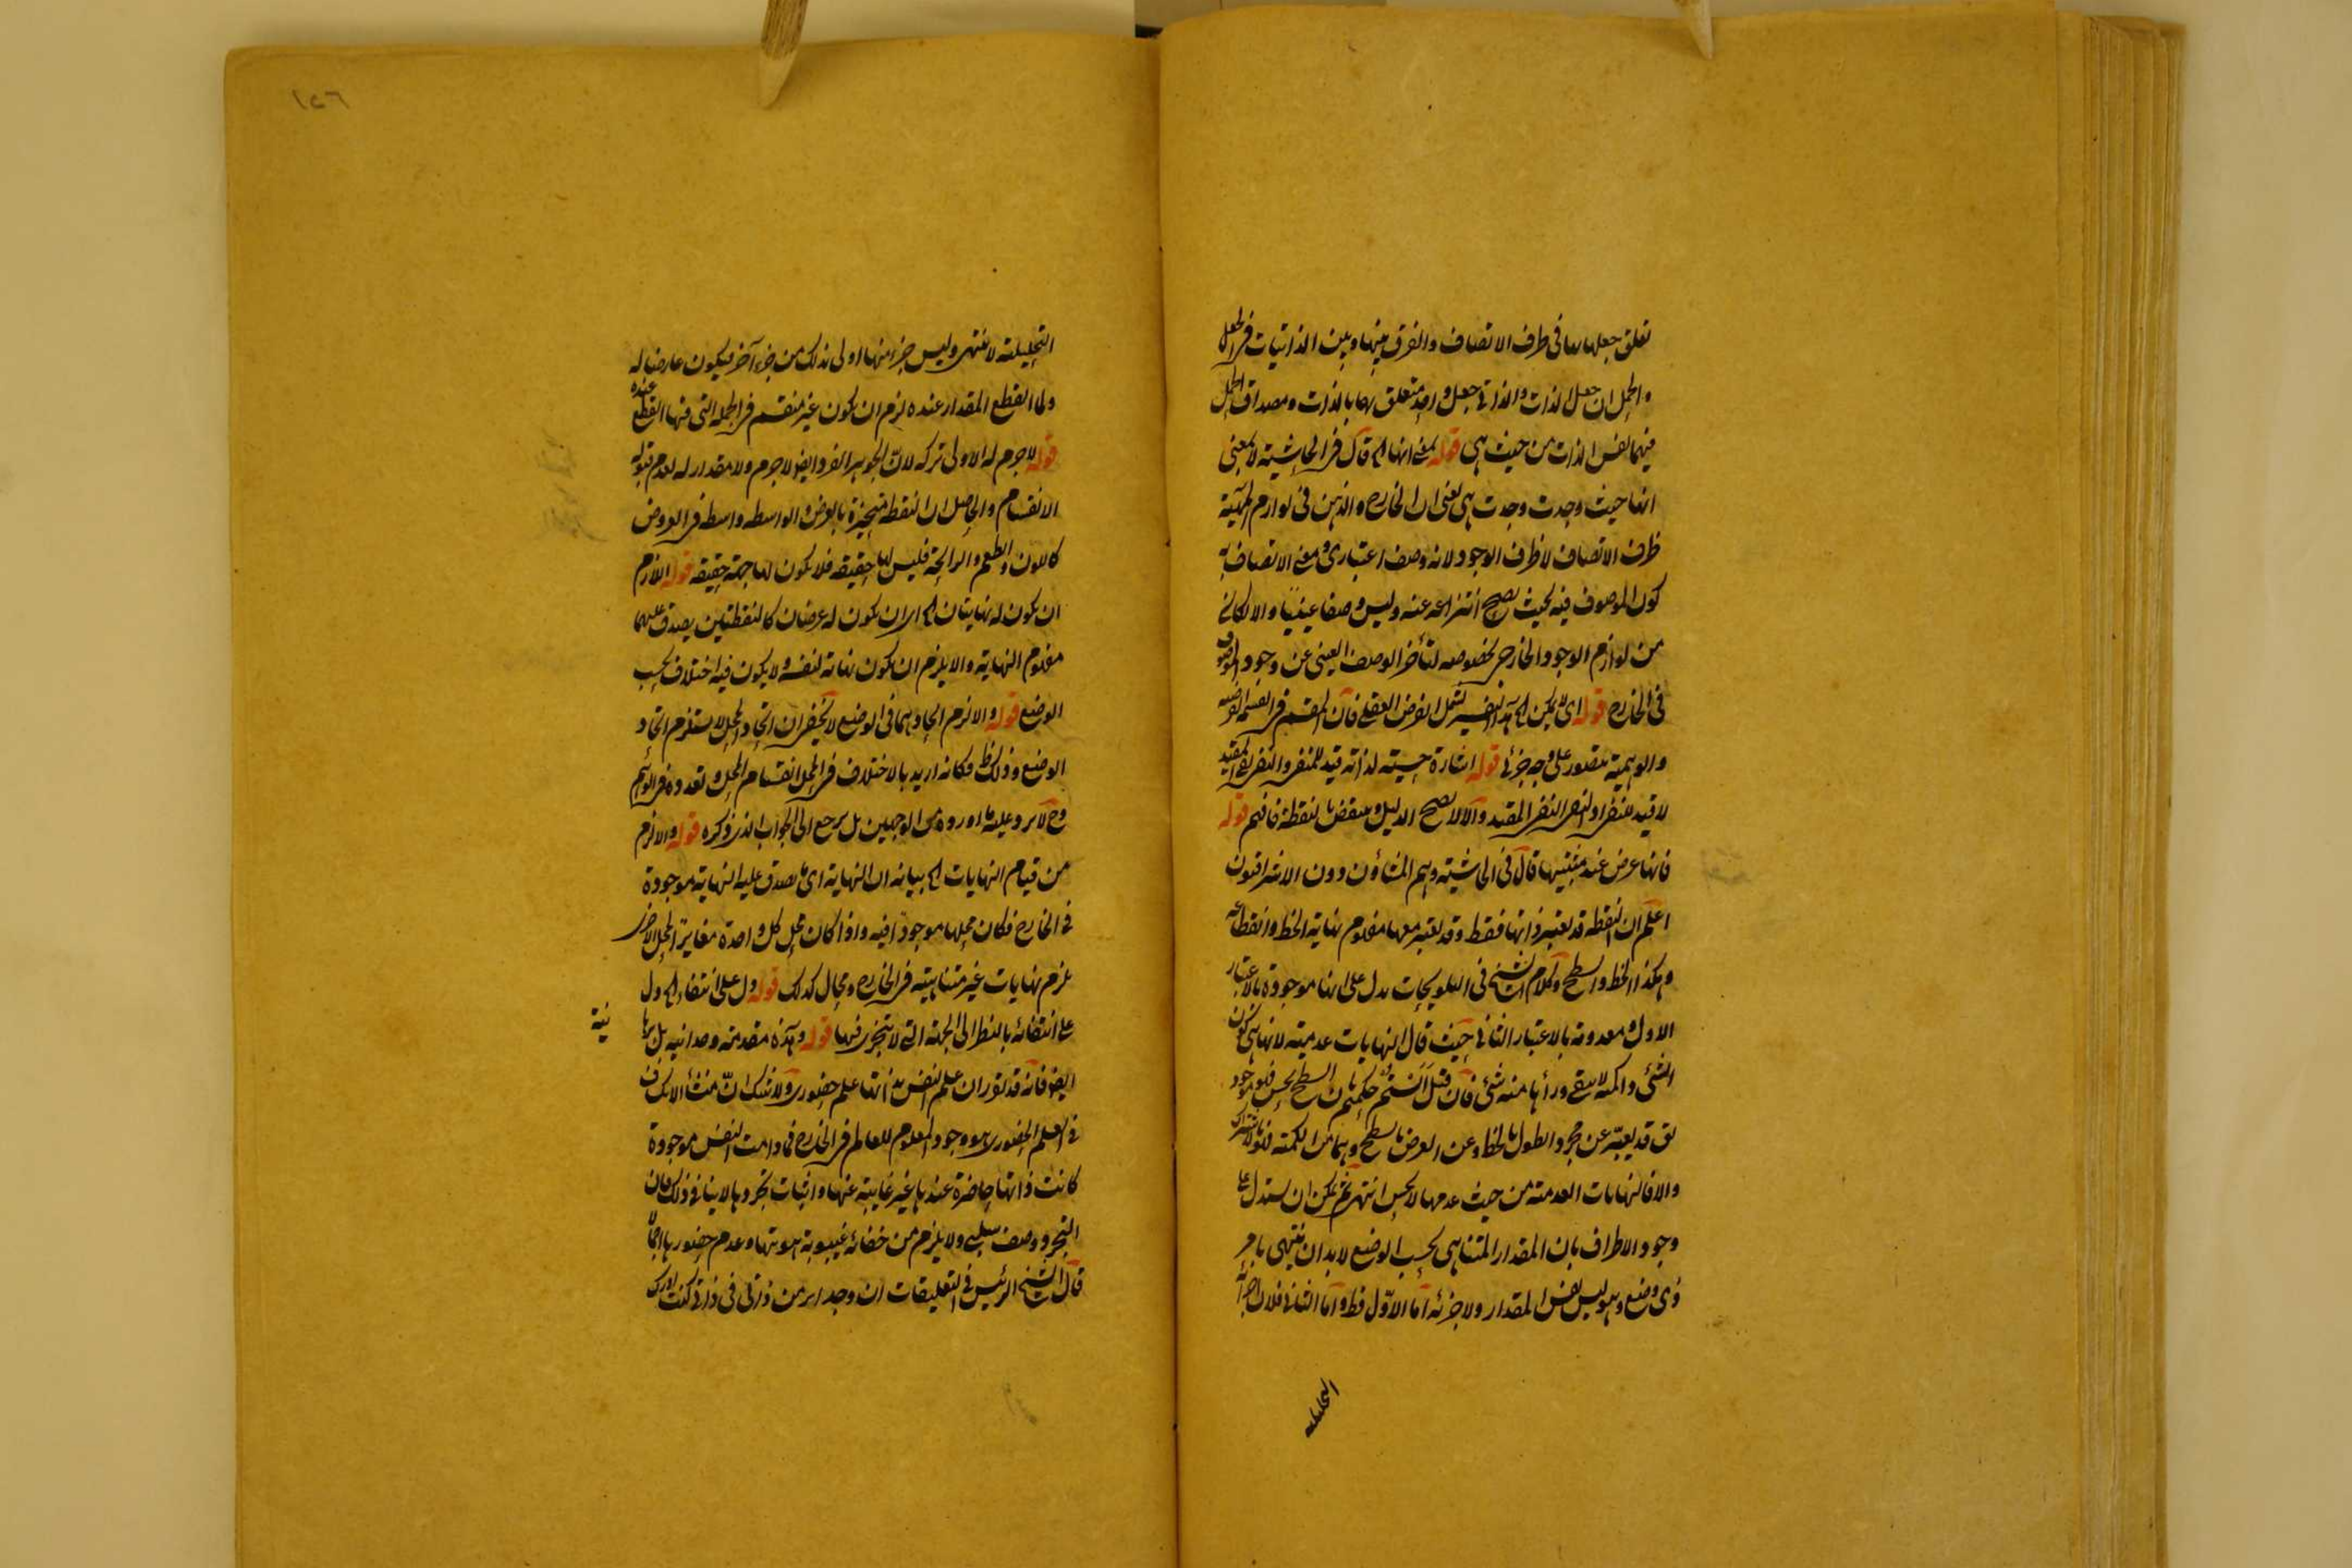 تعلق جعلها بها فى طرف الاتصاف والفرق بينها وبين الذاتيات فى الجعل
والحمل ان جعل الذات والذاتى جعل واحد متعلق بها بالذات ومصداق الحمل
فيهما نفس الذات من حيث هى قوله بمعنى انها الخ قال فى الحاشية لا بمعنى
انها حيث وجدت وجدت هى يعنى ان الخارج والذهن فى لوازم الماهية
ظرف الاتصاف لا ظرف الوجود لانه وصف اعتبارى ومعنى الاتصاف به
كون الموصوف فيه بحيث يصح انتزاعه عنه وليس وصفا عينيا والا لكانت
من لوازم الوجود الخارجى بخصوصه لتأخر الوصف العينى عن وجود الموصوف
فى الخارج قوله اى لا يمكن الخ هذا التفسير يشمل الفرض العقلى فان المقسم فى القسمة الفرضية
والوهمية متصور على وجه جزئى قوله اشارة حسية لذاته قيد للمنفى والنفى نفى المقيد
لا قيد للنفى او لنفى النفى المقيد والا لا يصح الدليل وينتقض بالنقطة فافهم قوله
فانها عرض عند مثبتيها قال فى الحاشية وهم المشاؤن دون الاشراقيون
اعلم ان النقطة قد تعتبر ذاتها فقط وقد تعتبر معها مفهوم نهاية الخط وانقطاعه
وهكذا الخط والسطح وكلام الشيخ فى التلويحات يدل على انها موجودة بالاعتبار
الاول ومعدومة بالاعتبار الثانى حيث قال النهايات عدمية لانها هى كون
الشئ والكمية لا يبقى وراءها منه شئ فان قيل الستم حكمتم بان السطح يحس فهو موجود
يق قد يعبر عن مجرد الطول بالخط وعن العرض بالسطح وهما من الكمية فقولا بالاشتراك
والا فالنهايات العدمية من حيث عدمها لا يحس انتهى ثم يمكن ان يستدل على
وجود الاطراف بان المقدار المتناهى بحسب الوضع لا بد ان ينتهى بامر
ذى وضع وهو ليس نفس المقدار ولا جزئه اما الاول فظ واما الثانى فلان اجزائه
التحليلية
التحليلية لا تنتهى وليس جزء منها اولى بذلك من جزء آخر فيكون عارضا له
ولما انقطع المقدار عنده لزم ان يكون غير منقسم فى الجهة التى فيها انقطع عنده
قوله لا جرم له الاولى تركه لان الجوهر الفرد ايضا لا جرم ولا مقدار له لعدم قبوله
الانقسام والحاصل ان النقطة متحيزة بالعرض والواسطة واسطة فى العروض
كاللون والطعم والرائحة فليس لها حقيقة فلا يكون لها جهة حقيقة قوله اللازم
ان يكون له نهايتان الخ اى ان يكون له عرضان كالنقطتين يصدق عليهما
مفهوم النهاية والا يلزم ان يكون نهاية لنفسه ولا يكون فيه اختلاف بحسب
الوضع قوله والا لزم اتحادهما فى الوضع لا يخفى ان اتحاد المحل لا يستلزم اتحاد
الوضع وذلك ظ فكانه اريد بالاختلاف فى المحل انقسام المحل وتعدده فى الوهم
وح لا يرد عليه ما اورده من الوجهين بل يرجع الى الجواب الذى ذكره قوله والا لزم
من قيام النهايات الخ بيانه ان النهاية اى ما يصدق عليه النهاية موجودة
فى الخارج فكان محلها موجودا فيه واذا كان محل كل واحدة مغايرا لمحل الاخرى
يلزم نهايات غير متناهية فى الخارج ومحال كذلك قوله دل على انتفاء الخ دل
على انتفائه بالنظر الى الجهة التى لا يتجزى فيها قوله وهذه مقدمة وجدانية بل برهانية
ايضا فانه قد تقرر ان علم النفس بذاتها علم حضورى ولا شك ان منشأ الانكشاف
فى العلم الحضورى هو وجود المعلوم للعالم فى الخارج فما دامت النفس موجودة
كانت ذاتها حاضرة عندها غير غائبة عنها واثبات تجردها لا ينافى ذلك فان
التجرد وصف سلبى ولا يلزم من خفائه غيبوبة هويتها وعدم حضورها اجمالا
قال الشيخ الرئيس فى التعليقات ان وجد اثر من ذاتى فى ذاتى كنت ادرك